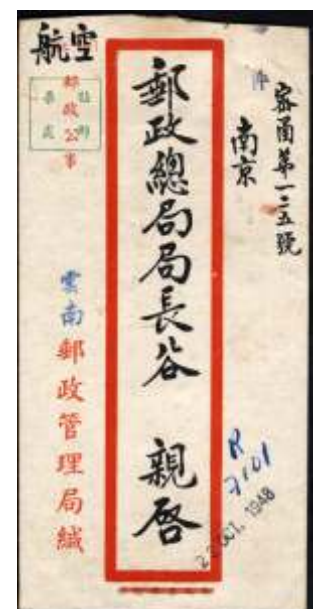 密函第一二五號
南京
郵政總局局長谷 親啓
航空
郵政公事
雲南郵政管理局緘
R
7101
23 OCT. 1948